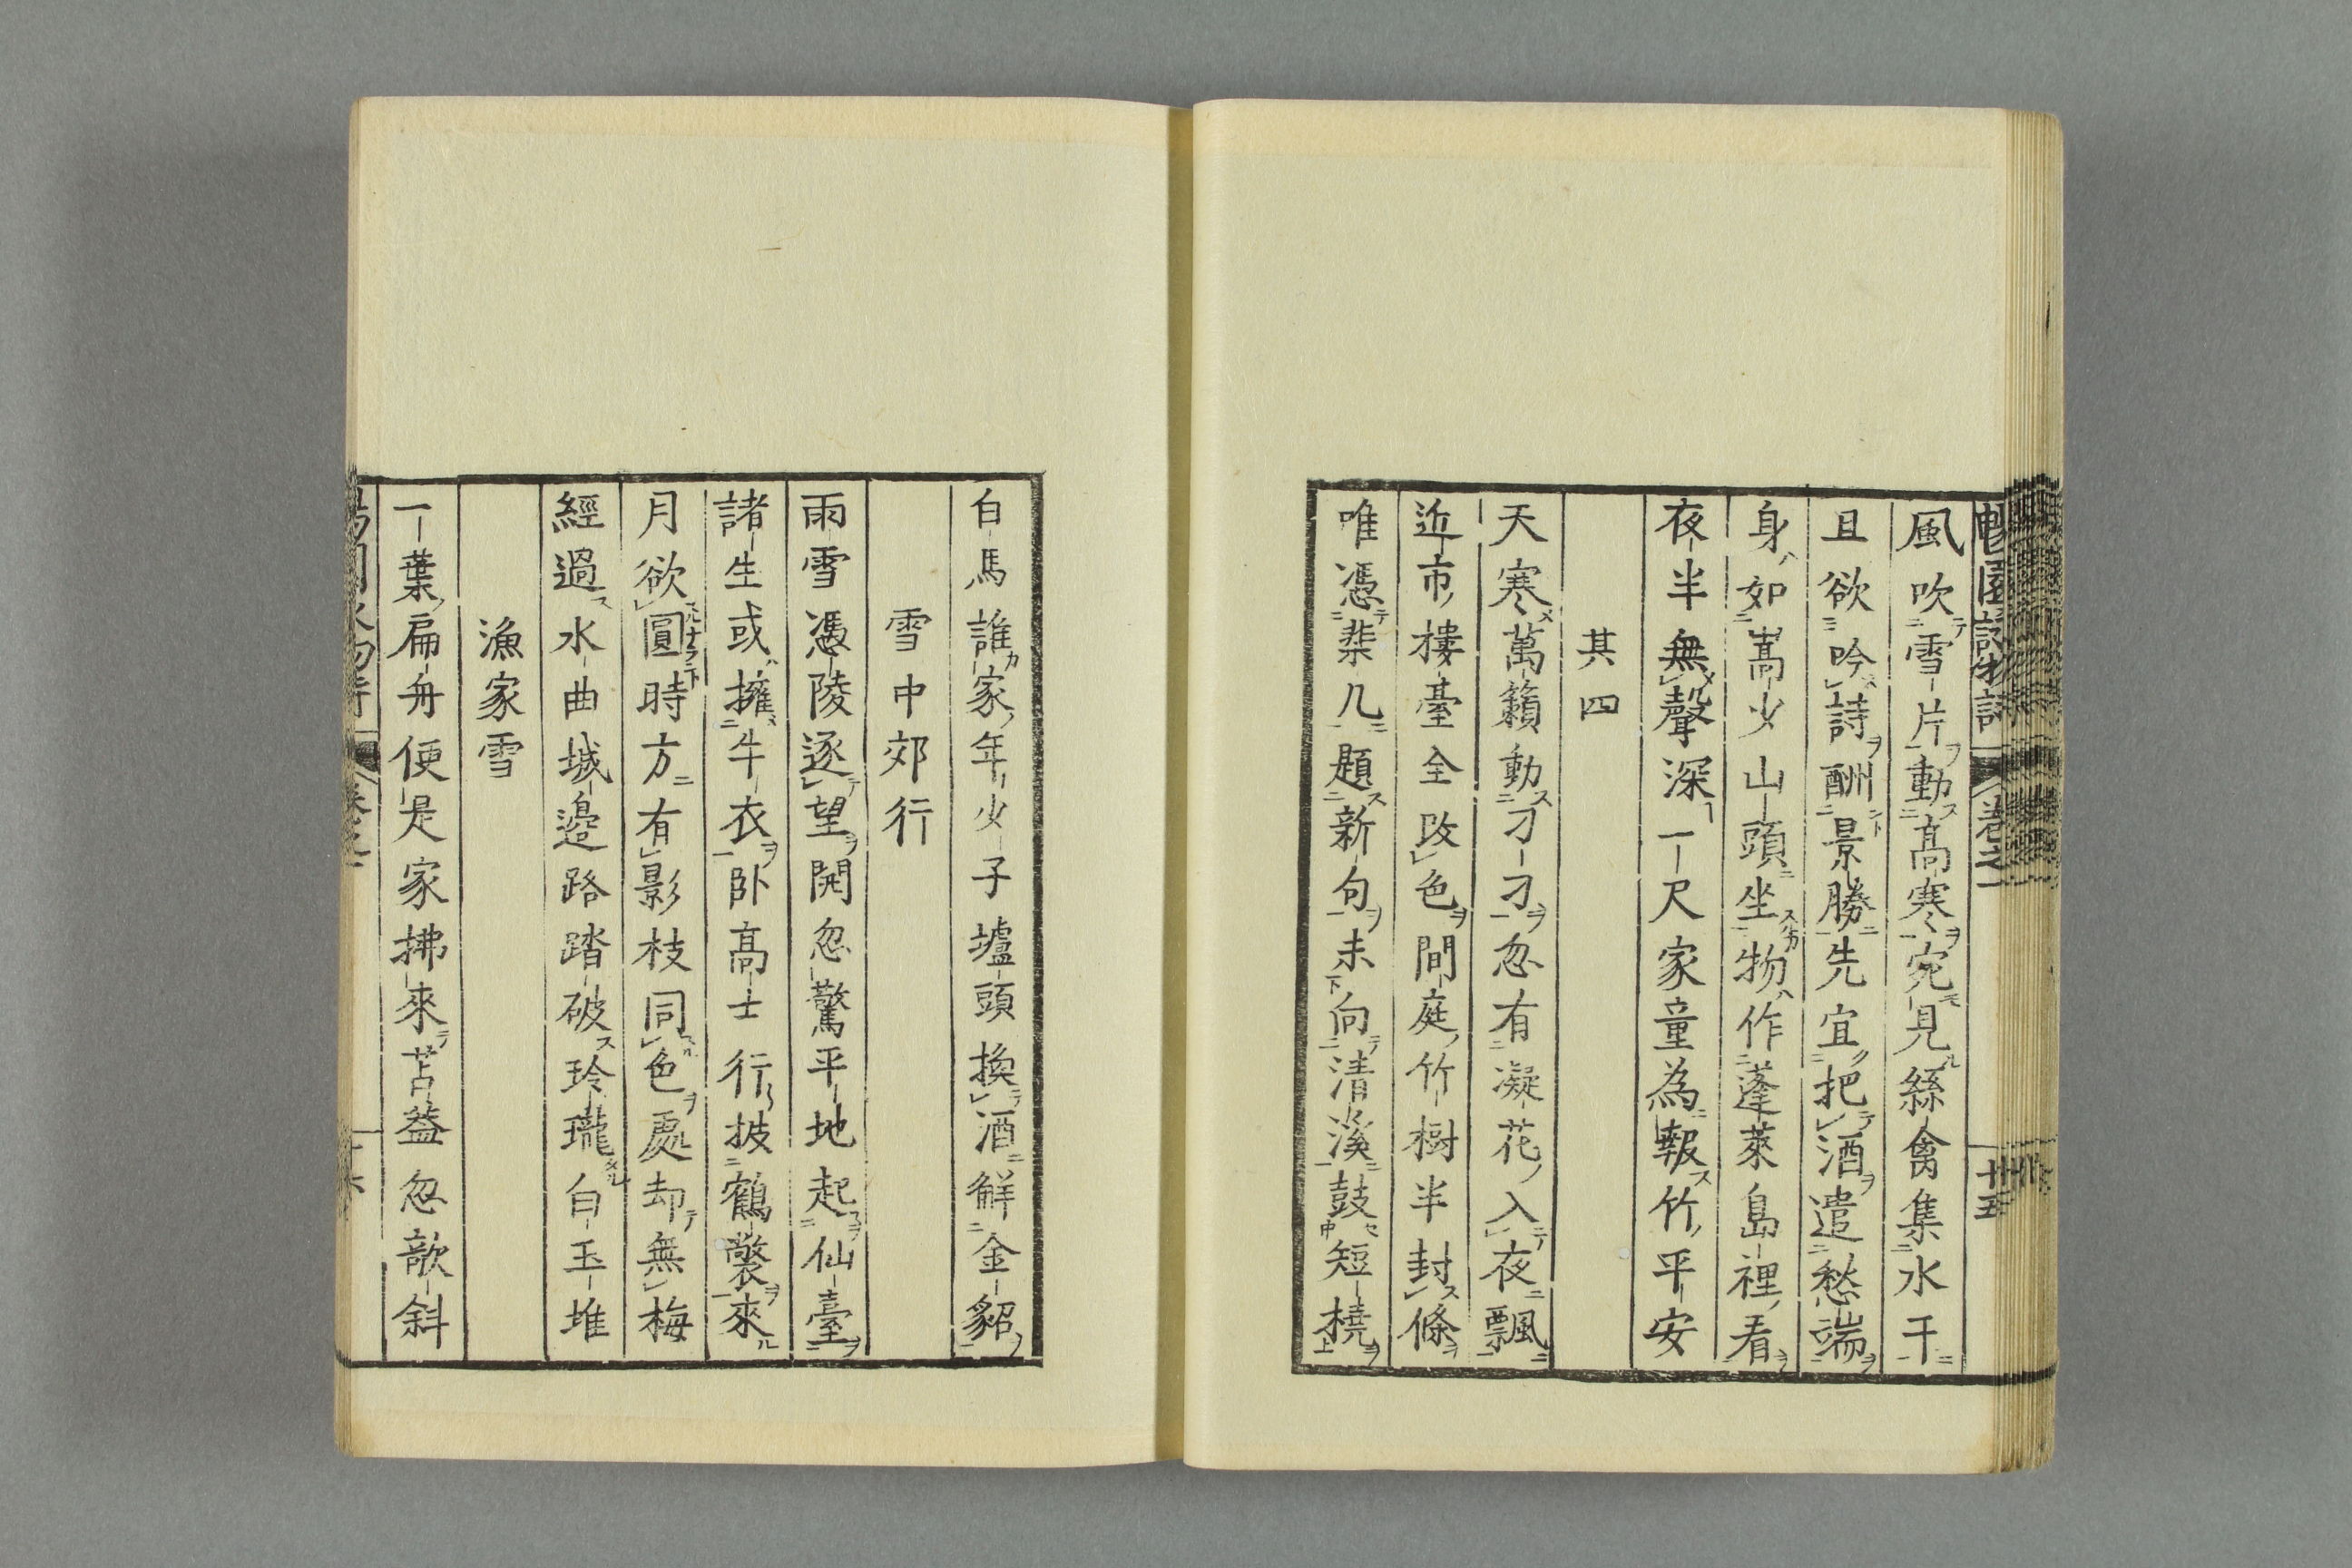 風吹雪片動高寒宛見絲禽集水干
且欲吟詩酬景勝先宜把酒遣愁端
身如嵩少山頭坐物作蓬萊島裡看
夜半無聲深一尺家童為報竹平安
其四
天寒萬籟動刁刁忽有凝花入夜飄
近市樓臺全改色間庭竹樹半封條
唯憑棐几題新句未向清溪鼓短橈
白馬誰家年少子壚頭換酒鮮金貂
雪中郊行
雨雪憑陵逐望開忽驚平地起仙臺
諸生或擁牛衣臥高士行披鶴氅來
月欲圓時方有影枝同色處却無梅
經過水曲城邊路踏破玲瓏白玉堆
漁家雪
一葉扁舟便是家拂來苫蓋忽敧斜